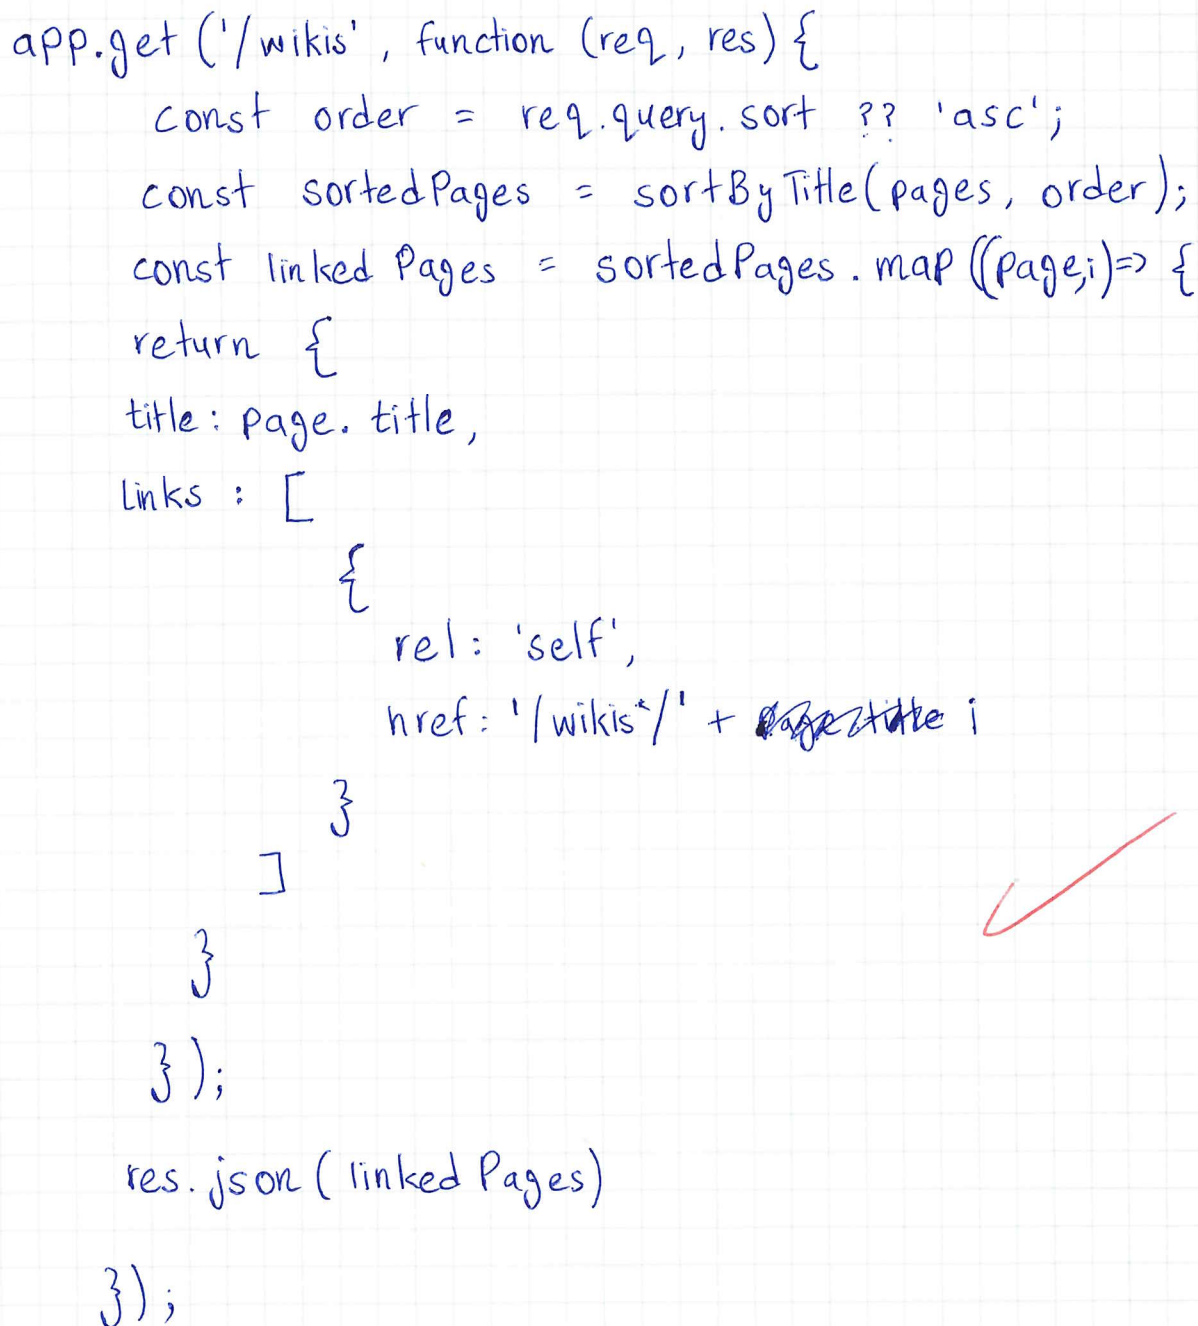 app.get('/wikis', function (req, res) {
const order = req.query.sort ?? 'asc';
const sortedPages = sortByTitle(pages, order);
const linkedPages = sortedPages.map((page,i)=> {
return {
title: page.title,
links: [
{
rel: 'self',
href: '/wikis/' + i
}
]
}
});
res.json(linkedPages)
});